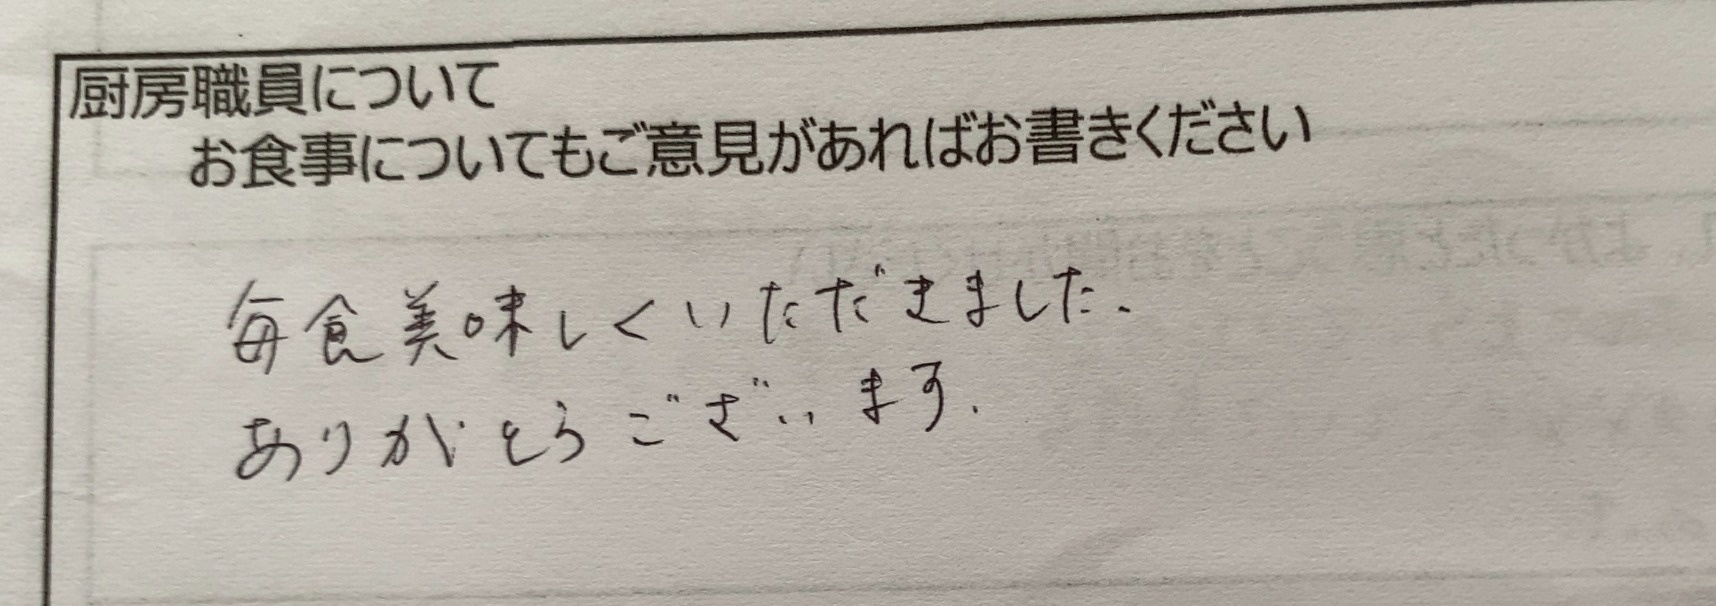 厨房職員について
お食事についてもご意見があればお書きください
毎食美味しくいただきました.
ありがとうございます.